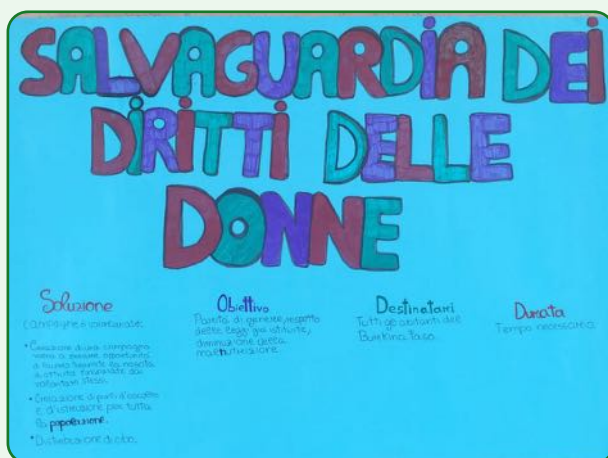 SALVAGUARDIA DEI
DIRITTI DELLE
DONNE
Soluzione
Campagne di volontariato:
• Creazione di una campagna
volta a fornire opportunità
di lavoro tramite la nascita
di attività finanziate dai
volontari stessi.
• Creazione di punti d'ascolto
e d'istruzione per tutta
la popolazione.
• Distribuzione di cibo.
Obiettivo
Parità di genere, rispetto
delle leggi già istituite,
diminuzione della
malnutrizione.
Destinatari
Tutti gli abitanti del
Burkina Faso
Durata
Tempo necessario